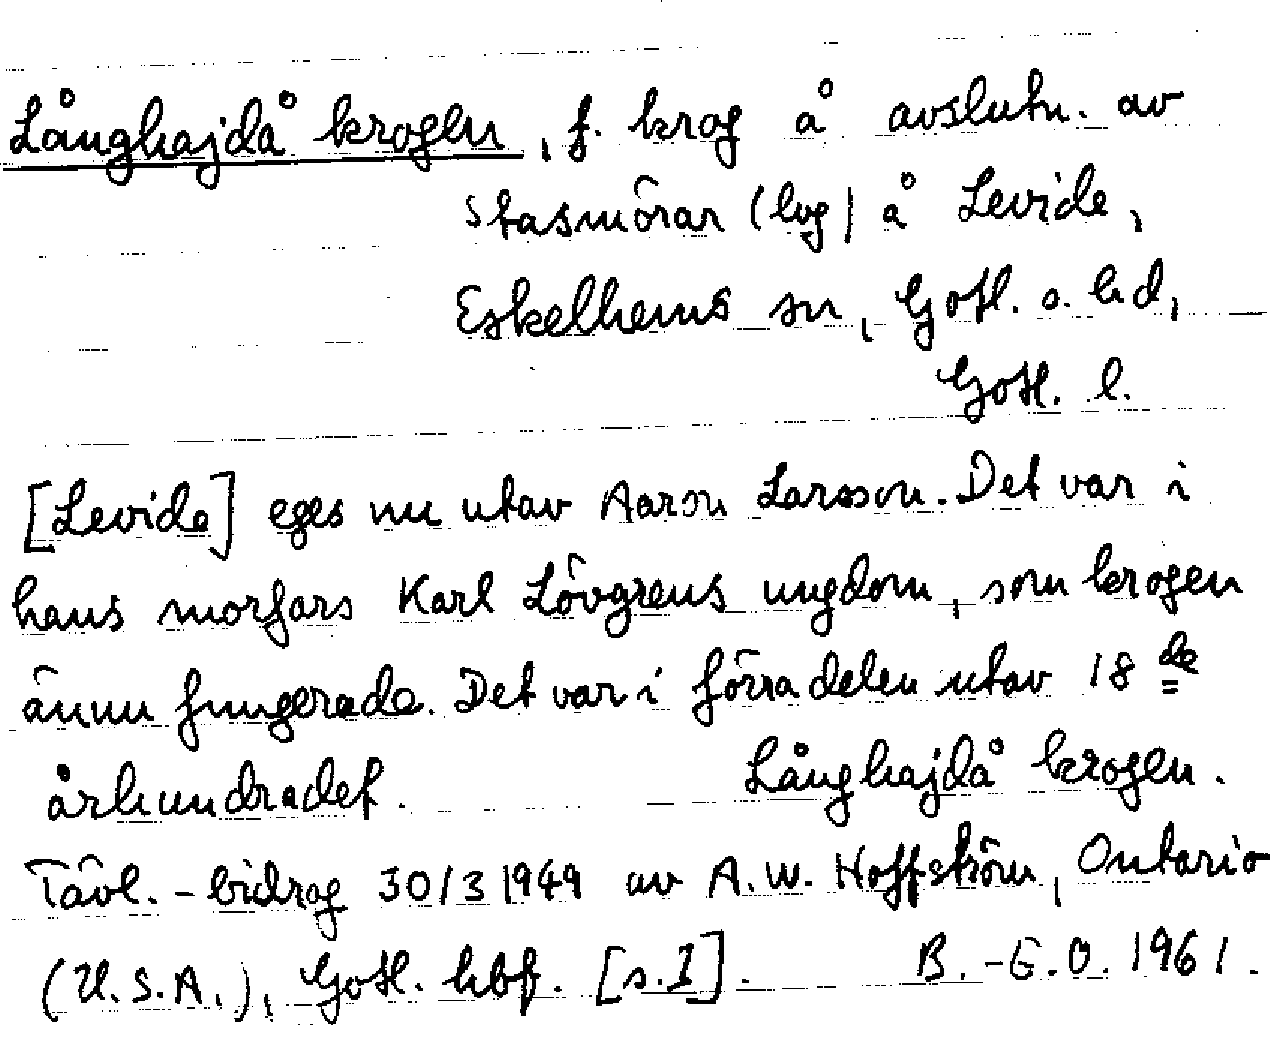 Långhajdå krogen, f. krog å avslutn. av
Stasmörar (lög) å Levide,
Eskelhems sn, Gotl. s. hd,
Gotl. l.
[Levide] eges nu utav Aaron Larsson. Det var i
hans morfars Karl Lövgrens ungdom, som krogen
ännu fungerade. Det var i förra delen utav 18de
århundradet. Långhajdå krogen.
Tävl.-bidrag 30/3 1949 av A.W. Hoffström, Ontario
(U.S.A.), Gotl. hbf. [s.1]. B.-E.O. 1961.